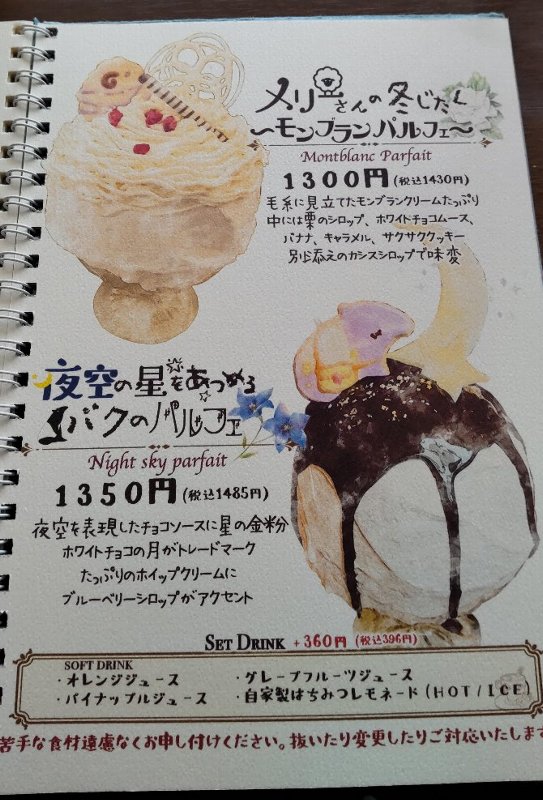 メリーさんの冬じたく
～モンブランパルフェ～
Montblanc Parfait
1300円(税込1430円)
毛糸に見立てたモンブランクリームたっぷり
中には栗のシロップ、ホワイトチョコムース、
バナナ、キャラメル、サクサククッキー
別添えのカシスシロップで味変
夜空の星をあつめる
バクのパルフェ
Night sky parfait
1350円(税込1485円)
夜空を表現したチョコソースに星の金粉
ホワイトチョコの月がトレードマーク
たっぷりのホイップクリームに
ブルーベリーシロップがアクセント
SET DRINK +360円 (税込396円)
SOFT DRINK
・オレンジジュース ・グレープフルーツジュース
・パイナップルジュース ・自家製はちみつレモネード(HOT/ICE)
苦手な食材遠慮なくお申し付けください。抜いたり変更したりご対応いたします